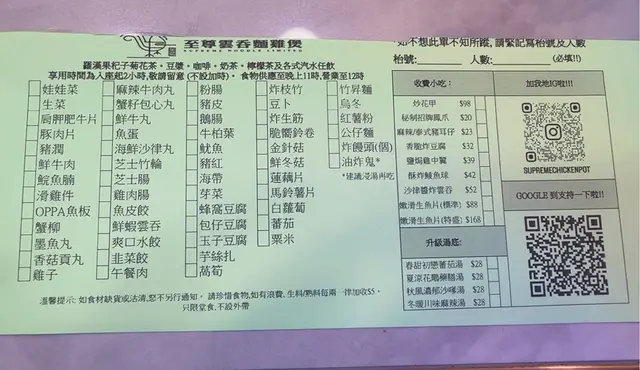 至尊雲吞麵雞煲
SUPREME NOODLES LIMITED
羅漢果杞子菊花茶。豆漿。咖啡。奶茶。檸檬茶及各式汽水任飲
享用時間為入座起2小時,敬請留意 (不設加時)。 食物供應至晚上11時,營業至12時
娃娃菜
生菜
肩胛肥牛片
豚肉片
豬潤
鮮牛肉
鯇魚腩
滑雞件
OPPA魚板
蟹柳
墨魚丸
香菇貢丸
雞子
麻辣牛肉丸
蟹籽包心丸
鮮牛丸
魚蛋
海鮮沙律丸
芝士竹輪
芝士腸
雞肉腸
魚皮餃
鮮蝦雲吞
爽口水餃
韭菜餃
午餐肉
粉腸
豬皮
鵝腸
牛柏葉
魷魚
豬紅
海帶
芽菜
蜂窩豆腐
包仔豆腐
玉子豆腐
芋絲扎
萵筍
炸枝竹
豆卜
炸生筋
脆響鈴卷
金針菇
鮮冬菇
蓮藕片
馬鈴薯片
白蘿蔔
蕃茄
粟米
竹昇麵
烏冬
紅薯粉
公仔麵
炸饅頭(個)
油炸鬼*
*建議浸湯再吃
溫馨提示: 如食材缺貨或沽清,恕不另行通知。 請珍惜食物,如有浪費, 生料/熟料每兩一律加收$5。
只限堂食,不設外帶
如不想此單不知所蹤, 請緊記寫枱號及人數
枱號: 人數: (必填!!)
收費小吃:
炒花甲 $98
秘制招牌鳳爪 $20
麻辣/泰式豬耳仔 $23
香脆炸豆腐 $32
鹽焗雞中翼 $39
酥炸鯪魚球 $42
沙律醬炸雲吞 $52
嫩滑生魚片(標準) $88
嫩滑生魚片(特盛) $168
升級湯底:
春甜初戀蕃茄湯 $28
夏涼花膠藥膳湯 $28
秋風濃郁沙嗲湯 $28
冬暖川味麻辣湯 $28
加我地IG啦!!!
SUPREMECHICKENPOT
GOOGLE 到支持一下啦!!